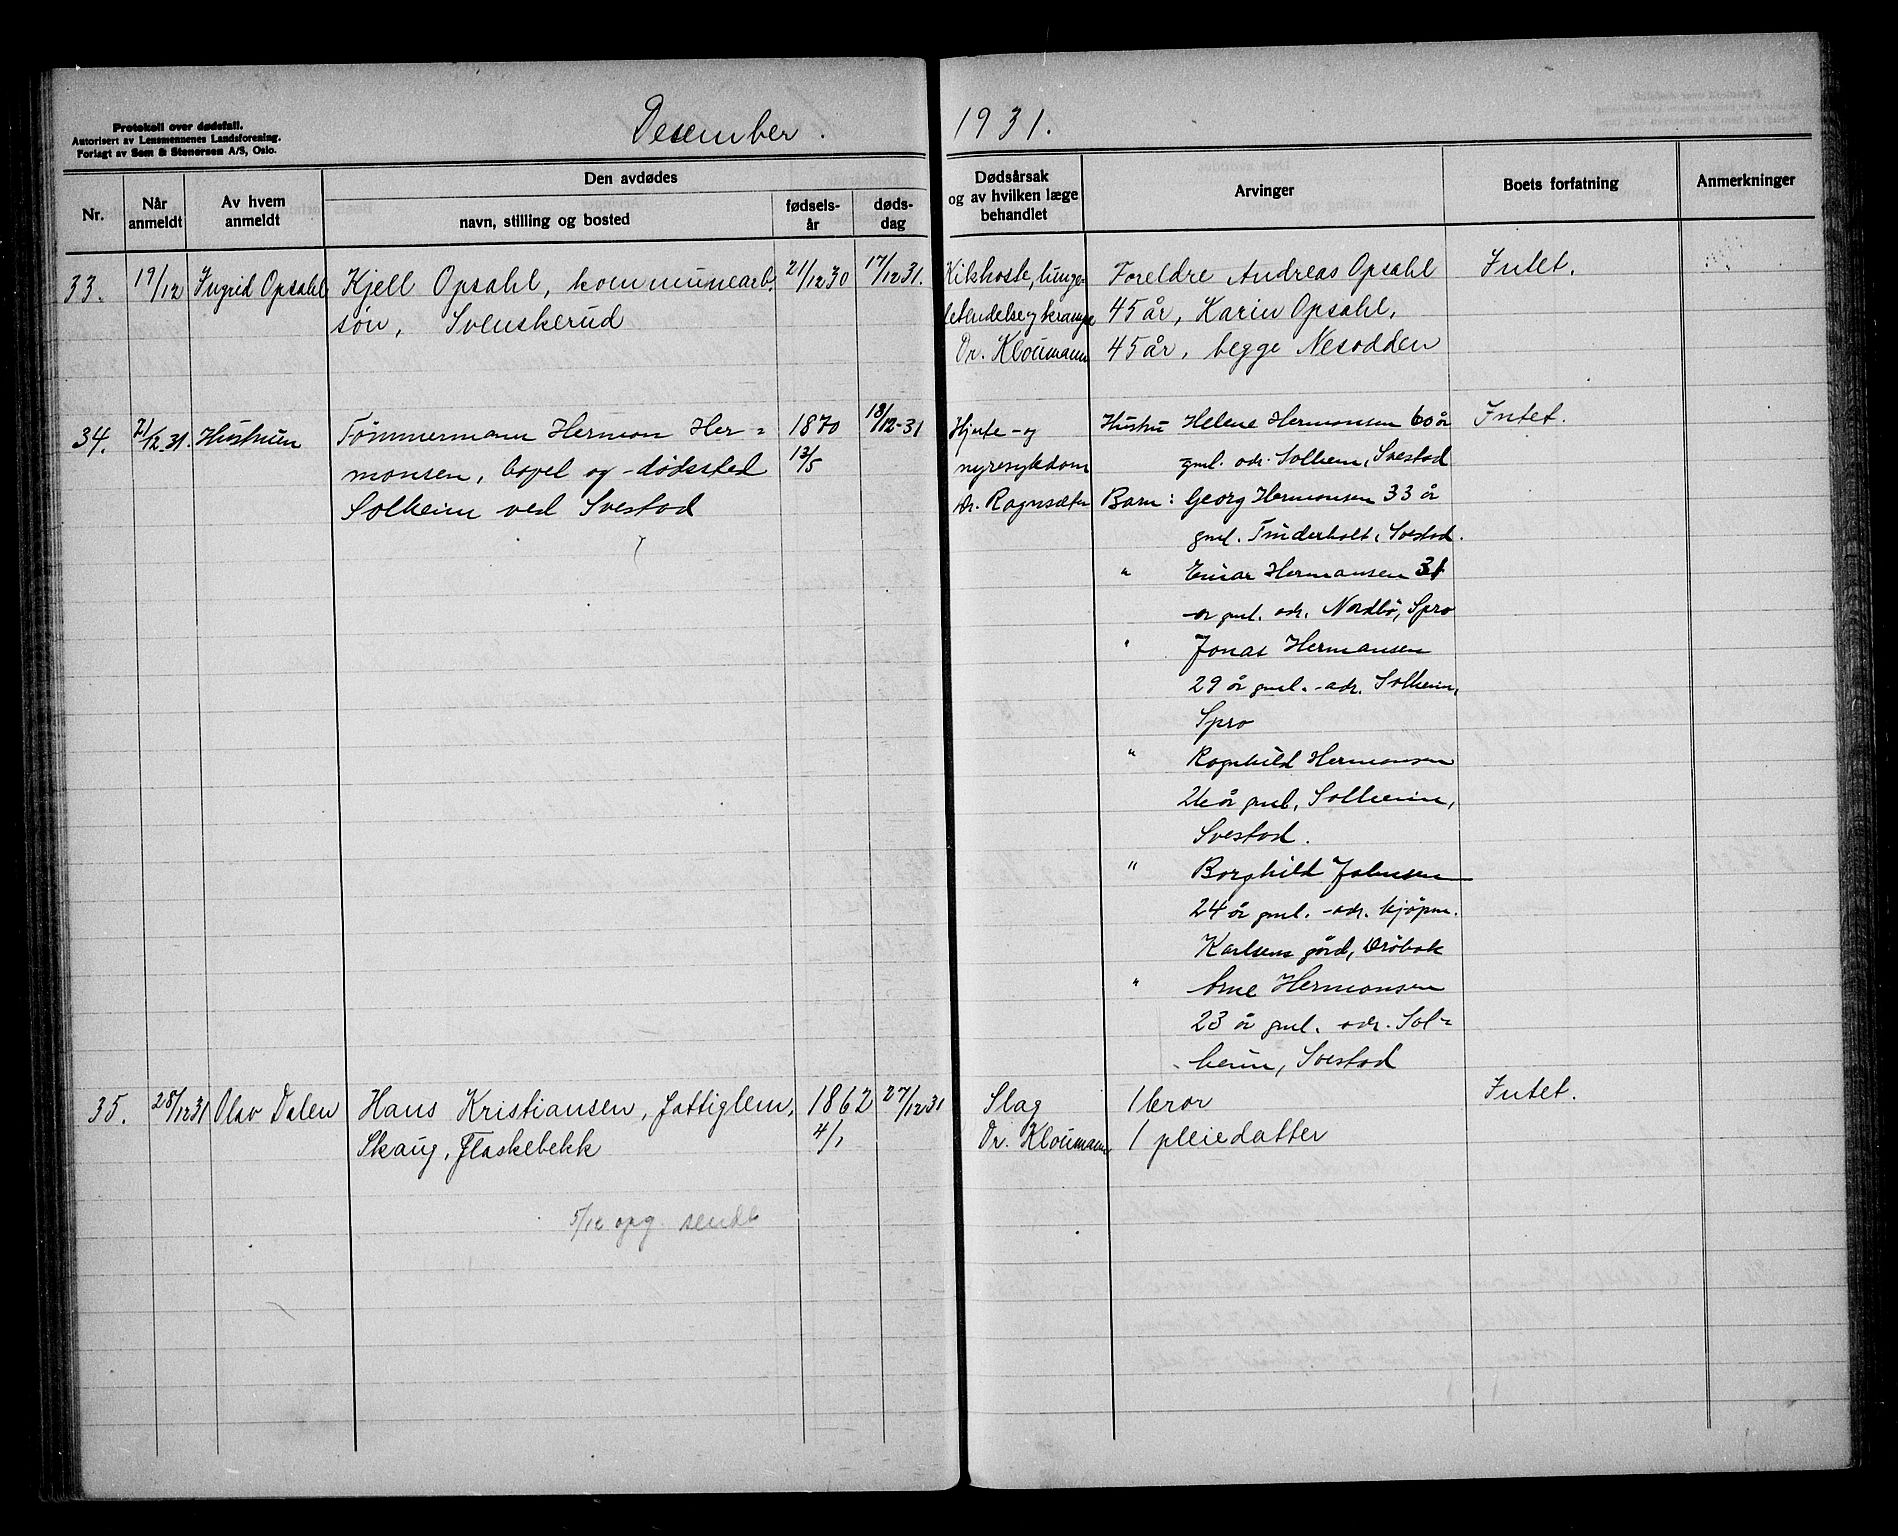 Protokoll over dødsfall.
Autorisert av Lensmennenes Landsforening.
Forlagt av Sem & Stenersen A/S, Oslo.
Desember. 1931.
Nr.
Når anmeldt
Av hvem anmeldt
Den avdødes
navn, stilling og bosted
fødsels-år
døds-dag
Dødsårsak
og av hvilken læge
behandlet
Arvinger
Boets forfatning
Anmerkninger
33. 19/12 Ingrid Opsahl Kjell Opsahl, kommunearb. 21/12 30 17/12 31.
søn, Svenskerud
Kikhoste, lunge-
betendelse og krampe
Dr. Kloumann
Foreldre Andreas Opsahl
45 år, Karin Opsahl,
45 år, begge Nesodden
Intet.
34. 21/12 31. Hustruen Tømmermann Herman Her-
mansen, bopel og -dødssted
Solheim ved Svestad
1870
13/5
18/12-31
Hjerte- og
nyresykdom
dr. Ragnsæter
Hustru Helene Hermansen 60 år
gml. adr. Solheim, Svestad
Barn: Georg Hermansen 33 år
gml. Tinderholt, Svestad.
" Einar Hermansen 31
år gml. adr. Nordbø, Spro
" Jonas Hermansen
29 år gml. -adr. Solheim,
Spro
" Ragnhild Hermansen
26 år gml, Solheim,
Svestad.
" Borghild Johnsen
24 år gml. -adr. kjøpm.
Karlsens gård, Drøbak
" Arne Hermansen
23 år gml. adr. Sol-
heim, Svestad
Intet.
35. 28/12 31 Olav Dalen Hans Kristiansen, fattiglem,
Skaug, Flaskebekk
1862
4/1
27/12 31
Slag
Dr. Kloumann
1 bror
1 pleiedatter
Intet.
5/12 opg. sendt